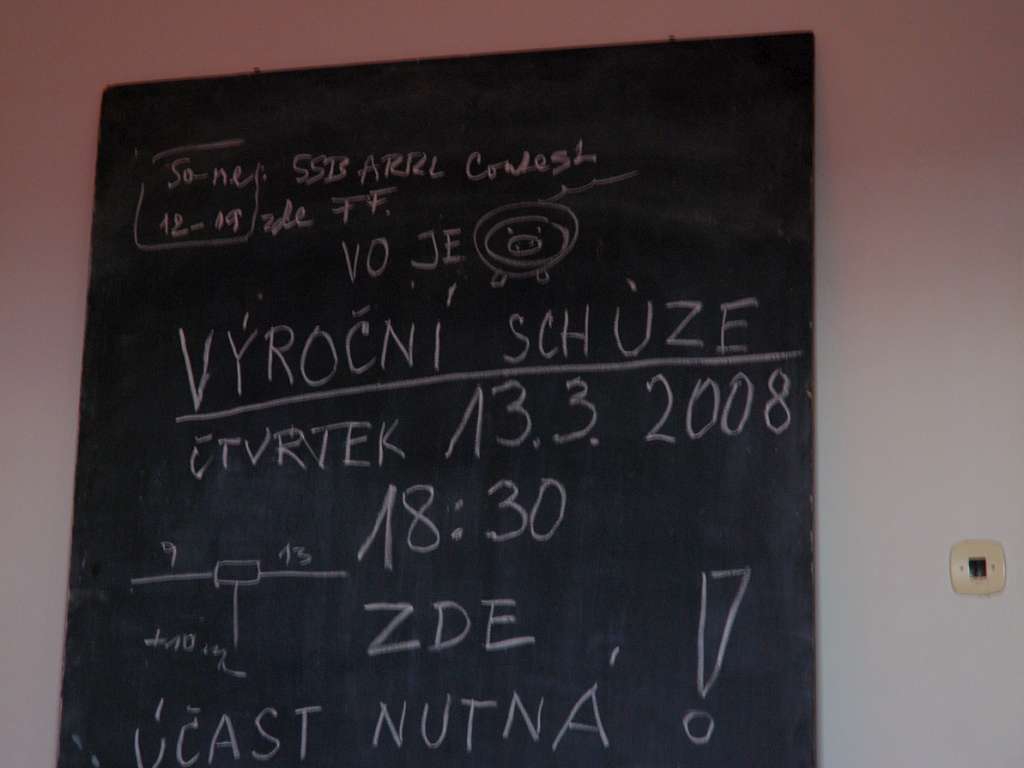 So-ne: SSB ARRL Contest
12-19 zde FF.
VO JE
VÝROČNÍ SCHŮZE
ČTVRTEK 13.3. 2008
18:30
9 13
ZDE !
ÚČAST NUTNÁ